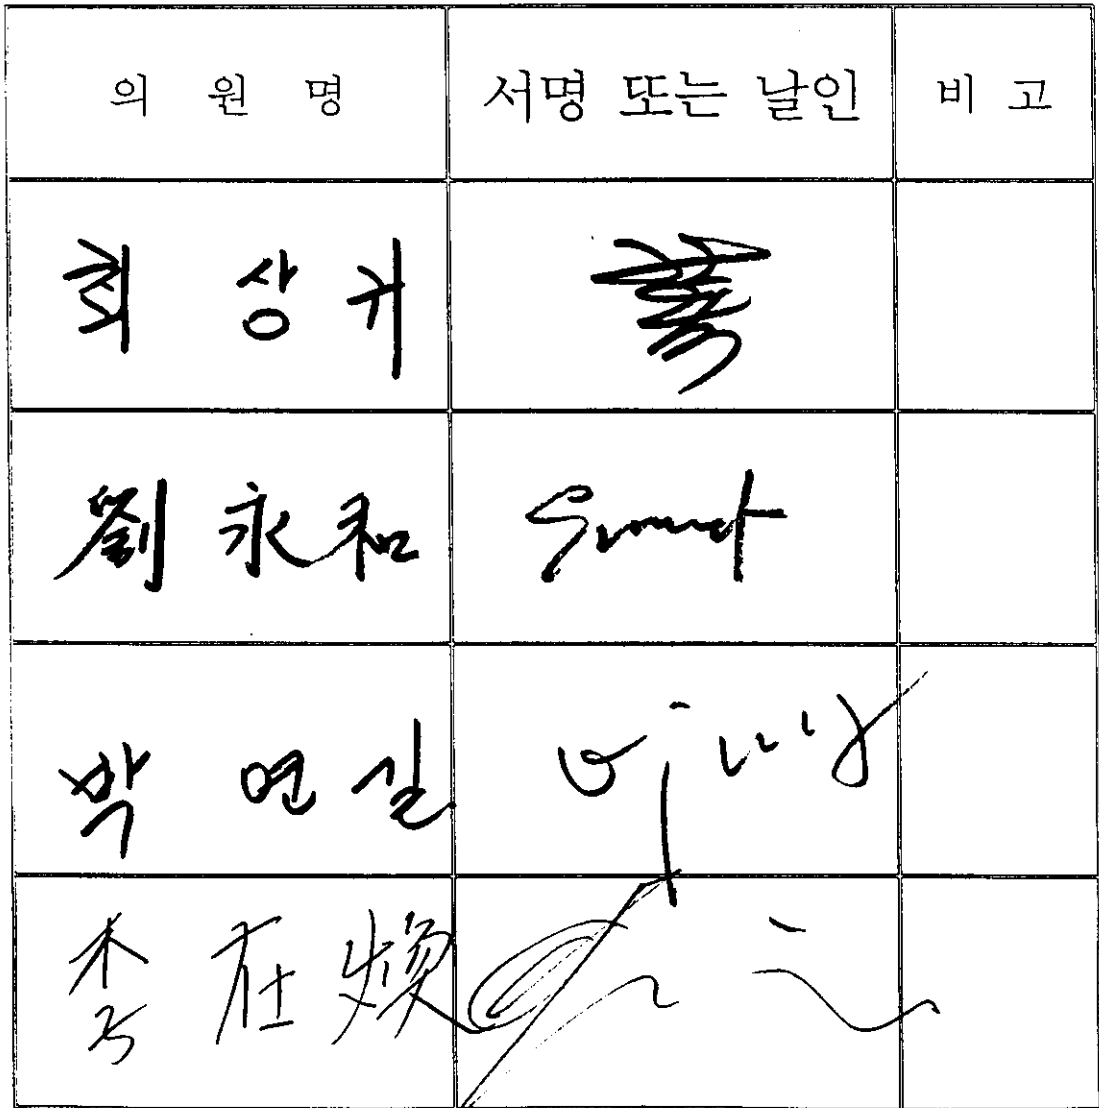 의 원 명 서명 또는 날인 비 고
최 상 귀
劉 永 和
박 연 길
李 在 煥